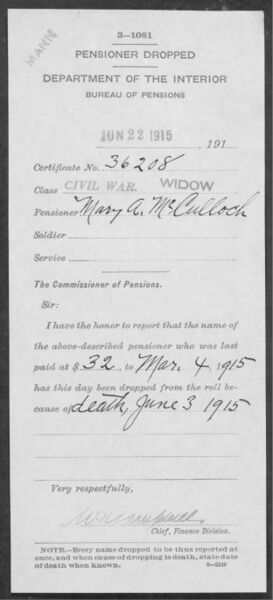 MANN
3—1081
PENSIONER DROPPED
DEPARTMENT OF THE INTERIOR
BUREAU OF PENSIONS
JUN 22 1915 , 191
Certificate No. 36208
Class CIVIL WAR. WIDOW
Pensioner Mary A. McCulloch
Soldier
Service
The Commissioner of Pensions.
Sir:
I have the honor to report that the name of
the above-described pensioner who was last
paid at $ 32, to Mar. 4, 1915
has this day been dropped from the roll be-
cause of death, June 3 1915
Very respectfully,
Chief, Finance Division.
NOTE.—Every name dropped to be thus reported
at once, and when cause of dropping is death, state date
of death when known. 6—2249